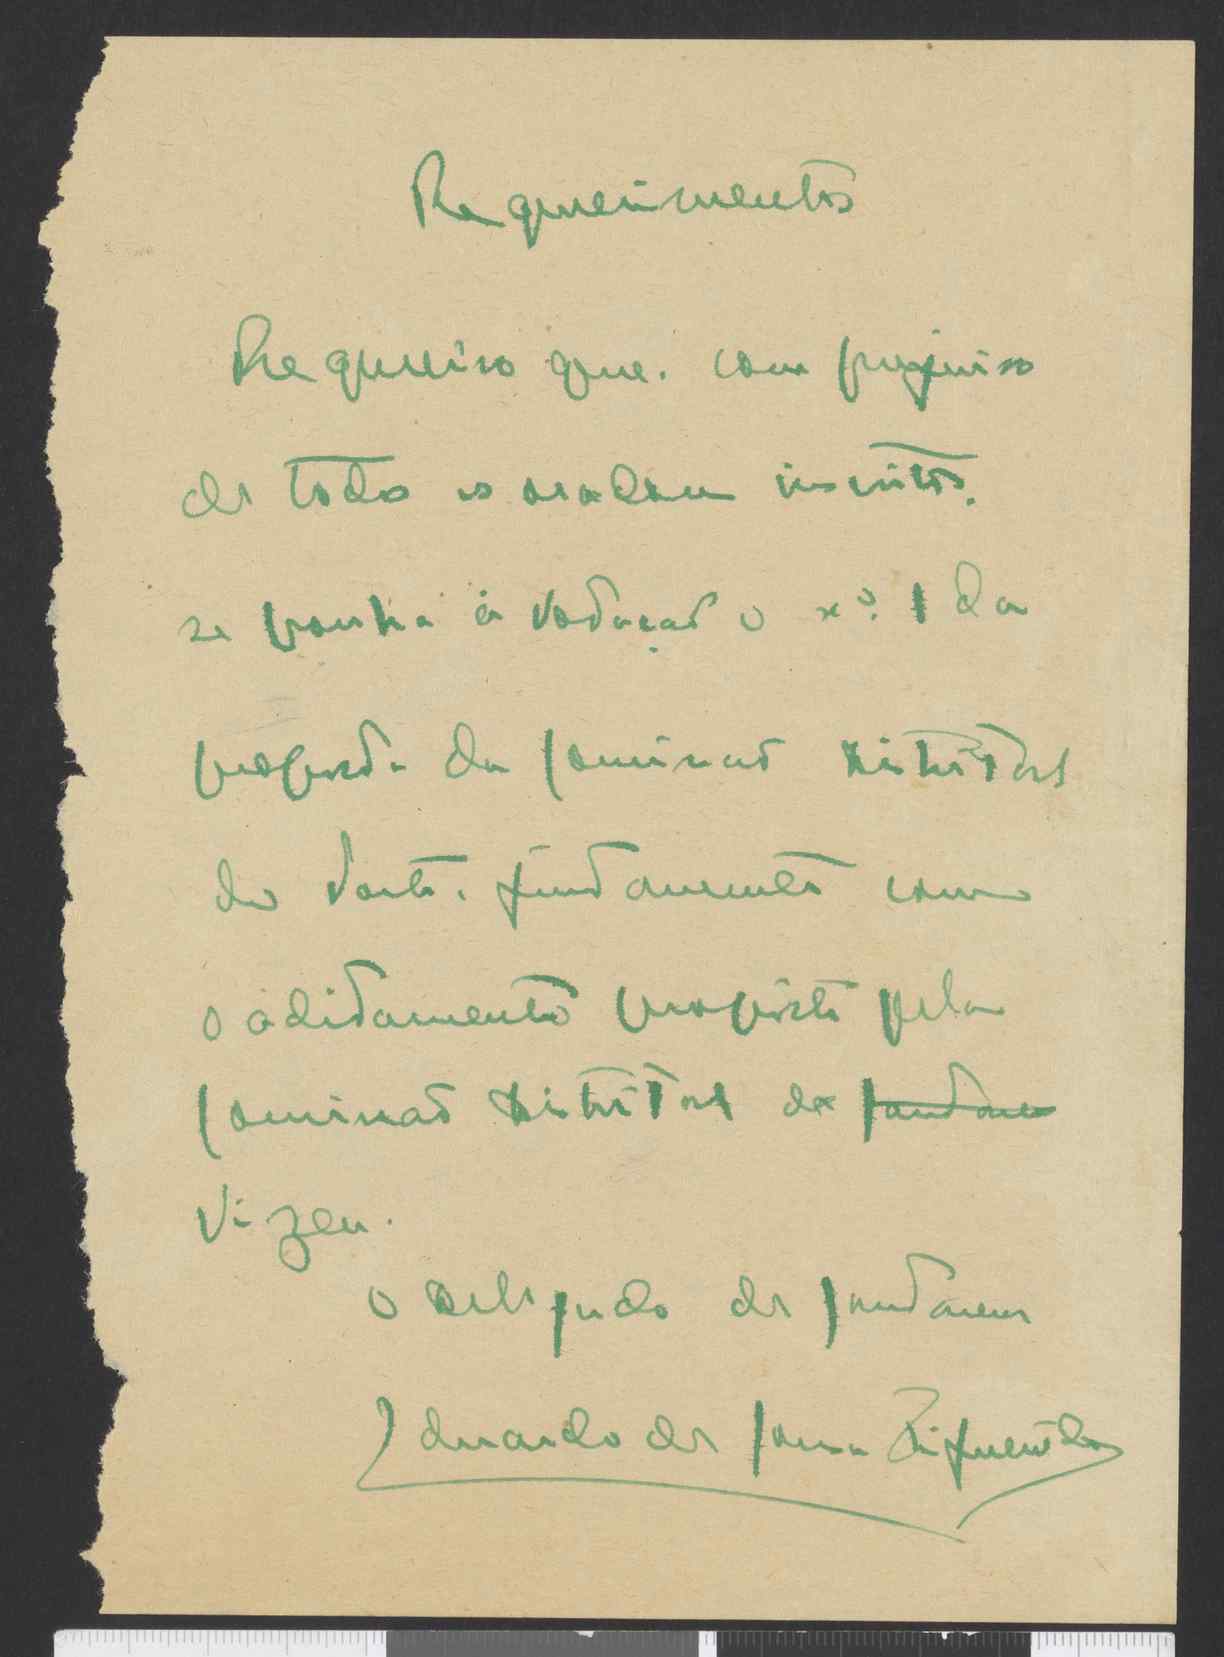 Requerimento
Requeiro que. com prejuiso
de todos os oradores inscritos,
se ponha á votação o nº 1 da
proposta da Comissão Distrital
do Porto. juntamente com
o aditamento proposto pela
Comissão Distrital de Santarem
Vizeu.
O Delegado de Santarem
Eduardo de